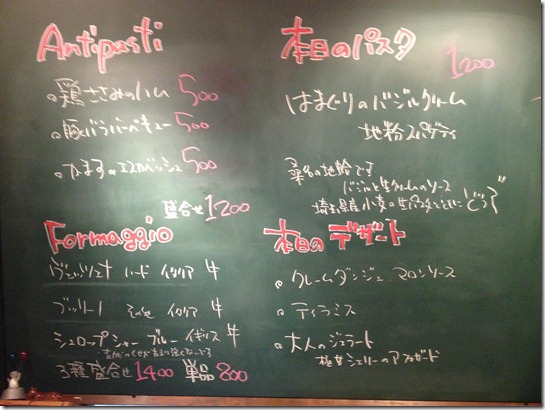 Antipasti
。鶏ささみのハム 500
。豚バラバーベキュー 500
。かますのエスカベッシュ 500
盛合せ 1200
Formaggio
ハード イタリア 牛
ブッリーノ その他 イタリア 牛
シュロップシャーブルー イギリス 牛
3種盛合せ 1400 単品 800
本日のパスタ
1200
はまぐりのバジルクリーム
地粉スパゲティ
桑名の地蛤です
バジルと生クリームのソース
埼玉県産小麦の生パスタとともにどうぞ
本日のデザート
。クレームダンジュ マロンソース
。ティラミス
。大人のジェラート
極甘シェリーのアフォガード